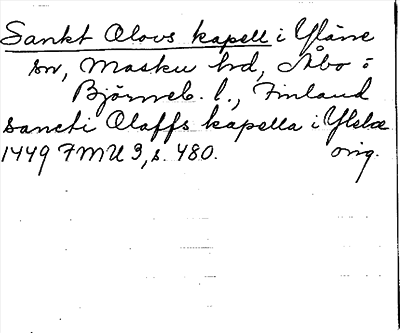 Sankt Olovs kapell i Yläne
sn, Masku hd, Åbo o
Björneb. l., Finland
sancti Olaffs kapella i Ylelæ
1449 FMU 3, s. 480. orig.